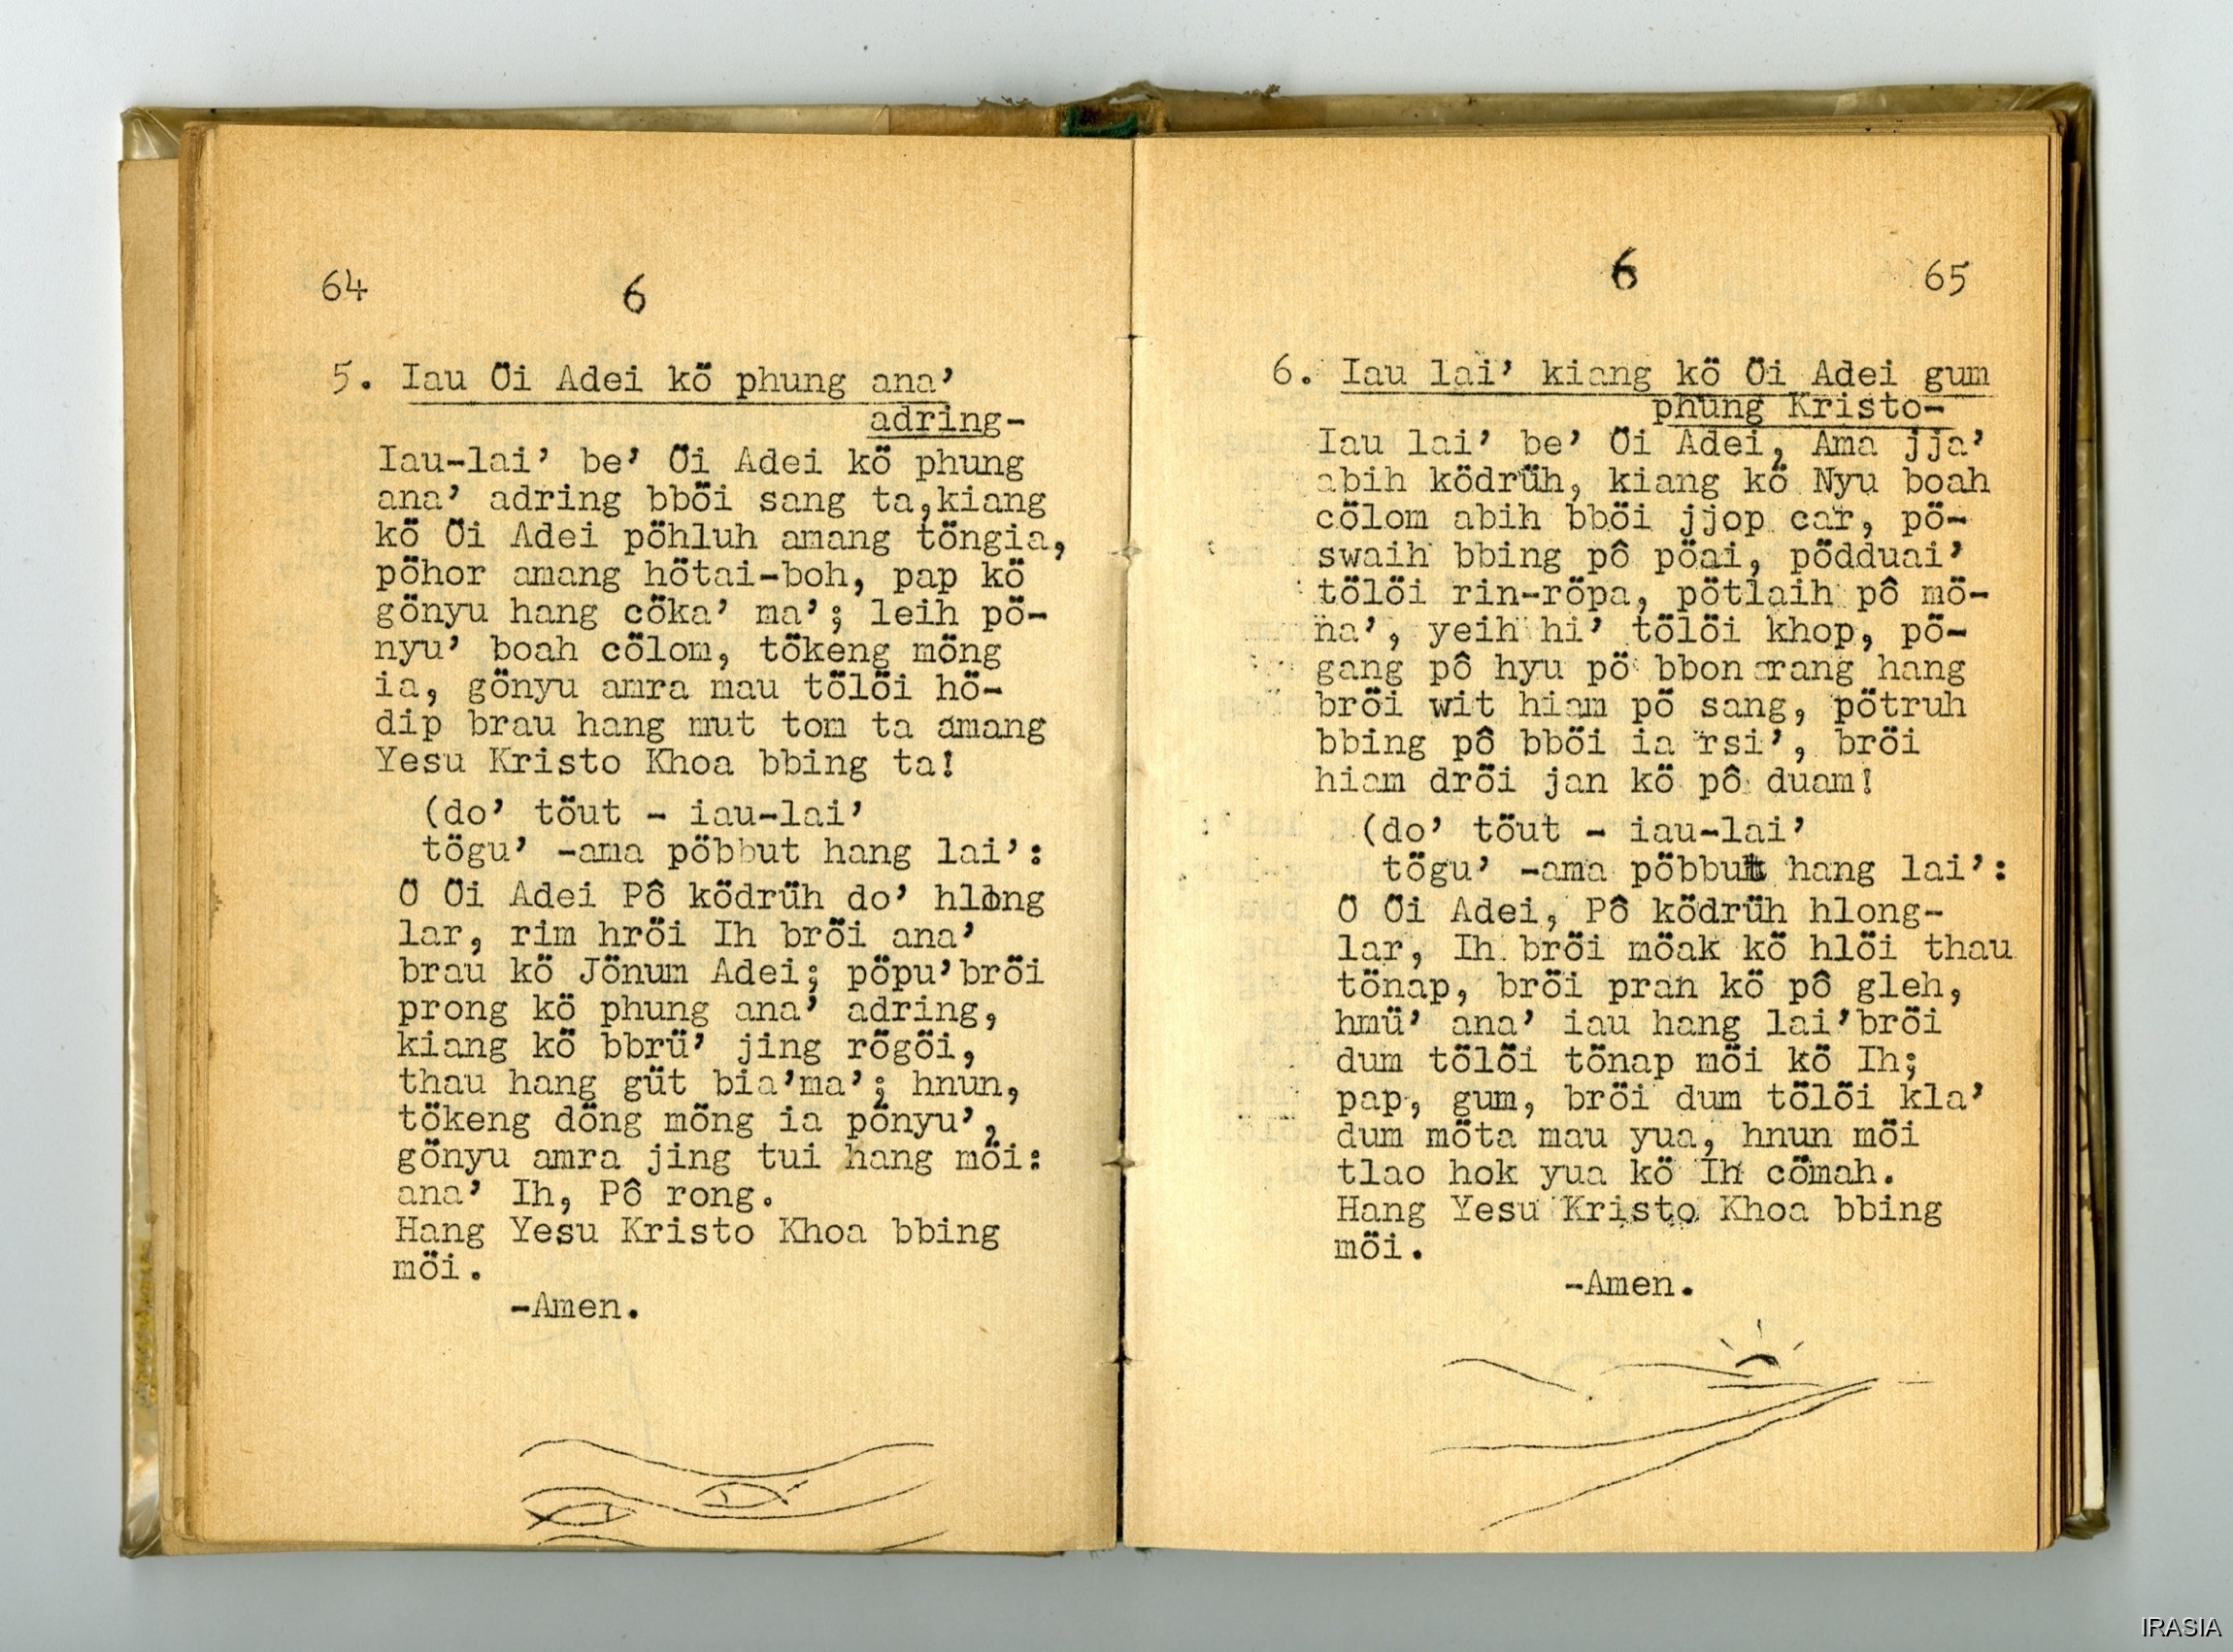 64
6
5. Iau Öi Adei kö phung ana’
adring-
Iau-lai’ be’ Öi Adei kö phung
ana’ adring bböi sang ta,kiang
kö Öi Adei pöhluh amang töngia,
pöhor amang hötai-boh, pap kö
gönyu hang cöka’ ma’; leih pö-
nyu’ boah cölom, tökeng möng
ia, gönyu amra mau tölöi hö-
dip brau hang mut tom ta amang
Yesu Kristo Khoa bbing ta!
(do’ töut - iau-lai’
tögu’ -ama pöbbut hang lai’:
Ö Öi Adei Pô ködrüh do’ hlong
lar, rim hröi Ih bröi ana’
brau kö Jönum Adei; pöpu’bröi
prong kö phung ana’ adring,
kiang kö bbrü’ jing rögöi,
thau hang güt bia’ma’; hnun,
tökeng döng möng ia pönyu’,
gönyu amra jing tui hang möi:
ana’ Ih, Pô rong.
Hang Yesu Kristo Khoa bbing
möi.
-Amen.
6
65
6. Iau lai’ kiang kö Öi Adei gum
phung Kristo-
Iau lai’ be’ Öi Adei, Ama jja’
abih ködrüh, kiang kö Nyu boah
cölom abih bböi jjop car, pö-
swaih bbing pô pöai, pödduai’
tölöi rin-röpa, pötlaih pô mö-
na’, yeih hi’ tölöi khop, pö-
gang pô hyu pö bbon arang hang
bröi wit hiam pö sang, pötruh
bbing pô bböi ia rsi’, bröi
hiam dröi jan kö pô duam!
(do’ töut - iau-lai’
tögu’ -ama pöbbut hang lai’:
Ö Öi Adei, Pô ködrüh hlong-
lar, Ih bröi möak kö hlöi thau
tönap, bröi pran kö pô gleh,
hmü’ ana’ iau hang lai’bröi
dum tölöi tönap möi kö Ih;
pap, gum, bröi dum tölöi kla’
dum möta mau yua, hnun möi
tlao hok yua kö Ih cömah.
Hang Yesu Kristo Khoa bbing
möi.
-Amen.
IRASIA